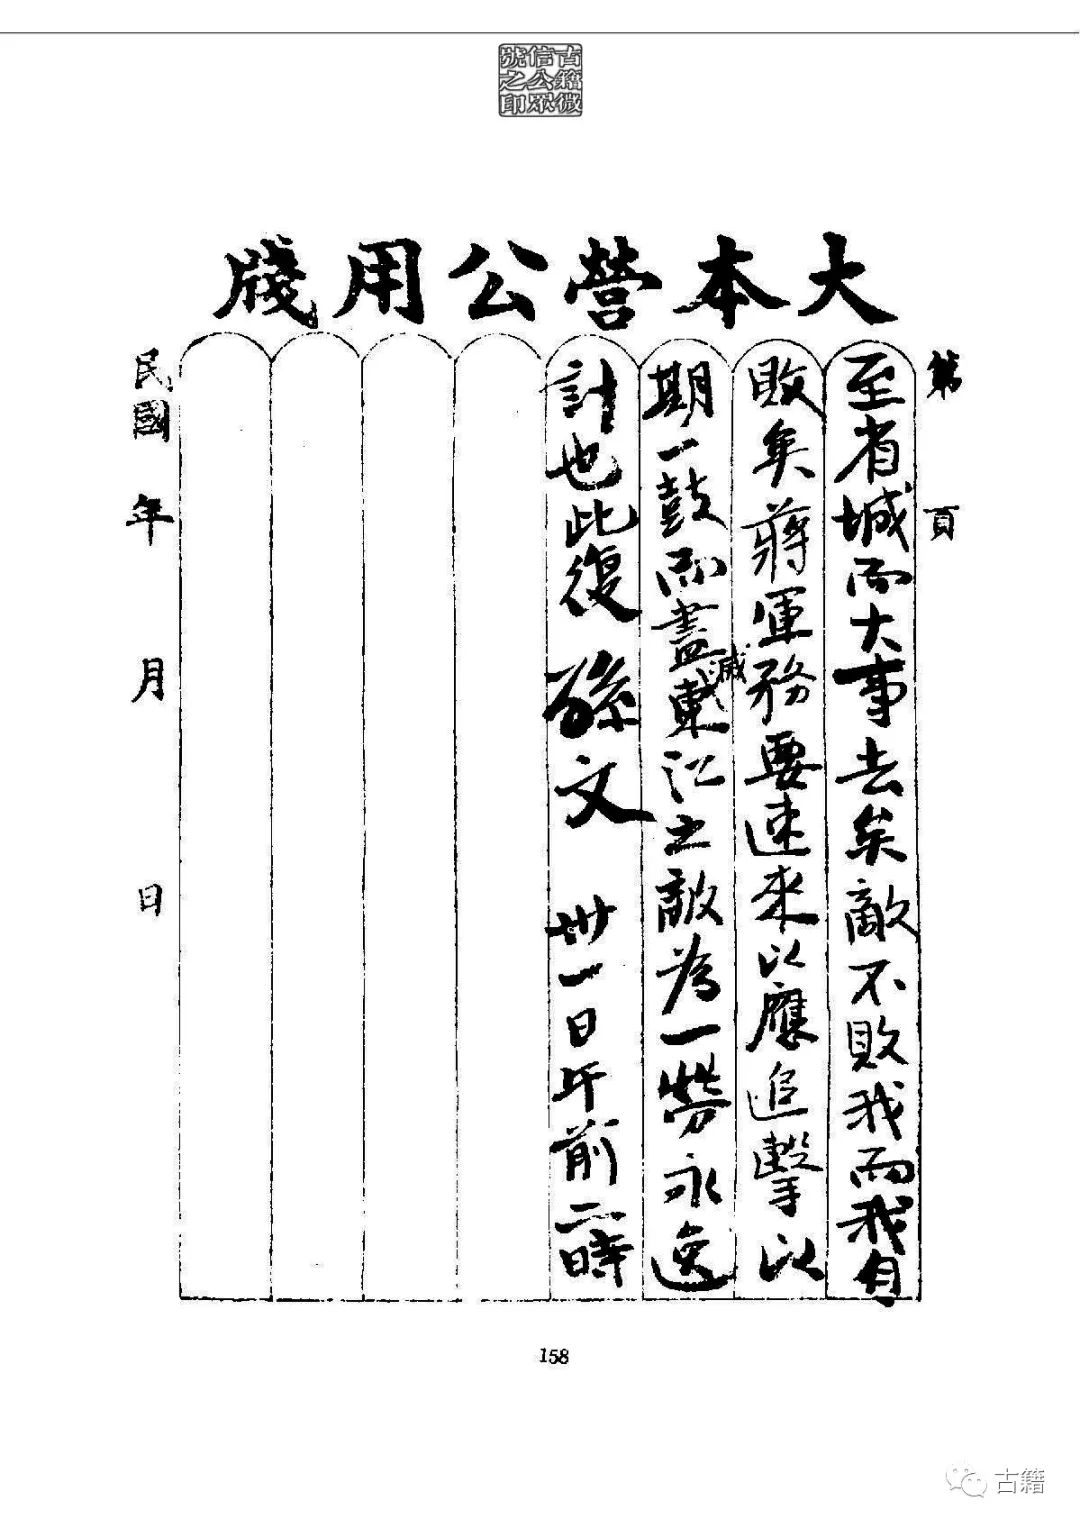 古籍微
信公眾
號之印
大本營公用牋
第 頁
至省城而大事去矣敵不敗我而我自
敗矣蔣軍務要速來以應追擊以
期一鼓而盡滅東江之敵為一勞永逸
計也此復 孫文 卅一日午前二時
民國 年 月 日
158
古籍